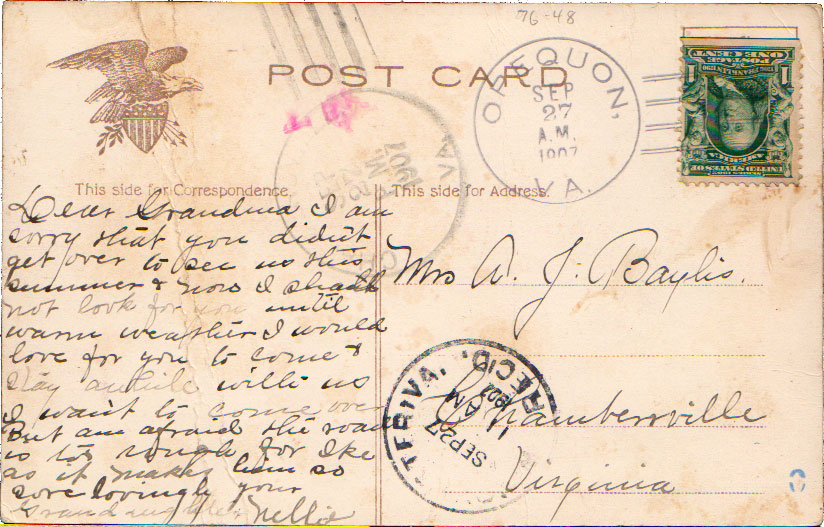 76-48
POST CARD
OPEQUON,
SEP
27
A.M.
1907
VA.
ONE CENT
POSTAGE
1 1
UNITED STATES OF
AMERICA
This side for Correspondence.
This side for Address.
Dear Grandma I am
sorry that you didn't
get over to see us this
summer & now I shall
not look for you until
warm weather I would
love for you to come &
stay awhile with us
I want to come over
But am afraid the road
is too rough for Ike
as it makes him so
sore lovingly your
Grand daughter Nellie
Mrs A. J. Baylis.
Chambersville
Virginia
TER, VA.
REC'D.
SEP 27
11 AM
1907